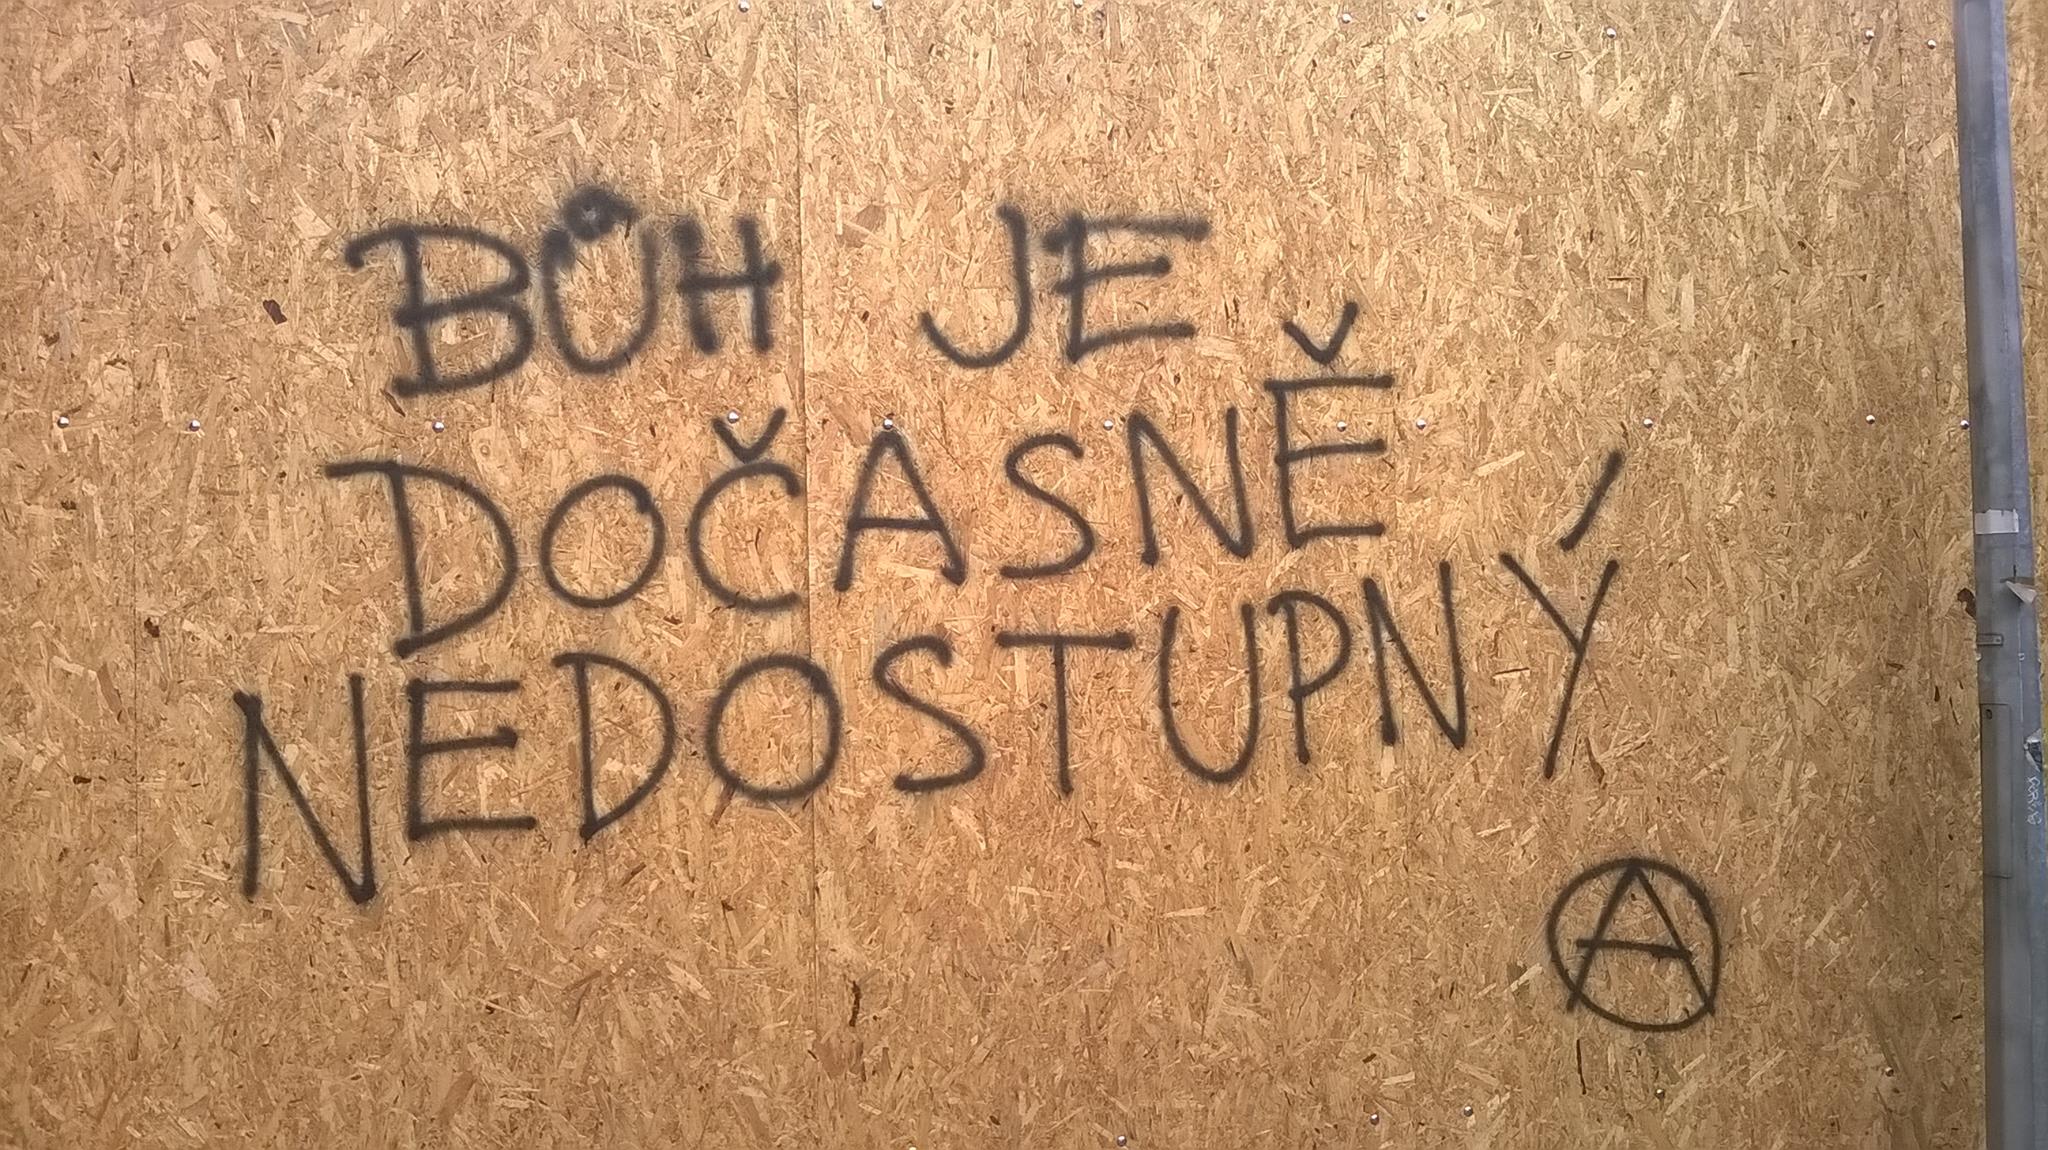 BŮH JE
DOČASNĚ
NEDOSTUPNÝ
Ⓐ